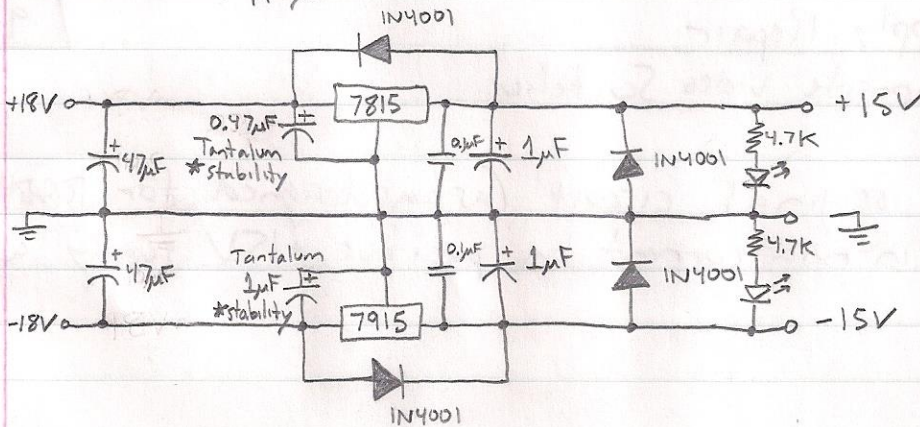 1N4001
+18V
7815
+15V
0.47µF
Tantalum
*stability
+
47µF
+
0.1µF
+
1µF
1N4001
4.7K
+
47µF
Tantalum
1µF
*stability
+
0.1µF
+
1µF
1N4001
4.7K
-18V
7915
-15V
1N4001